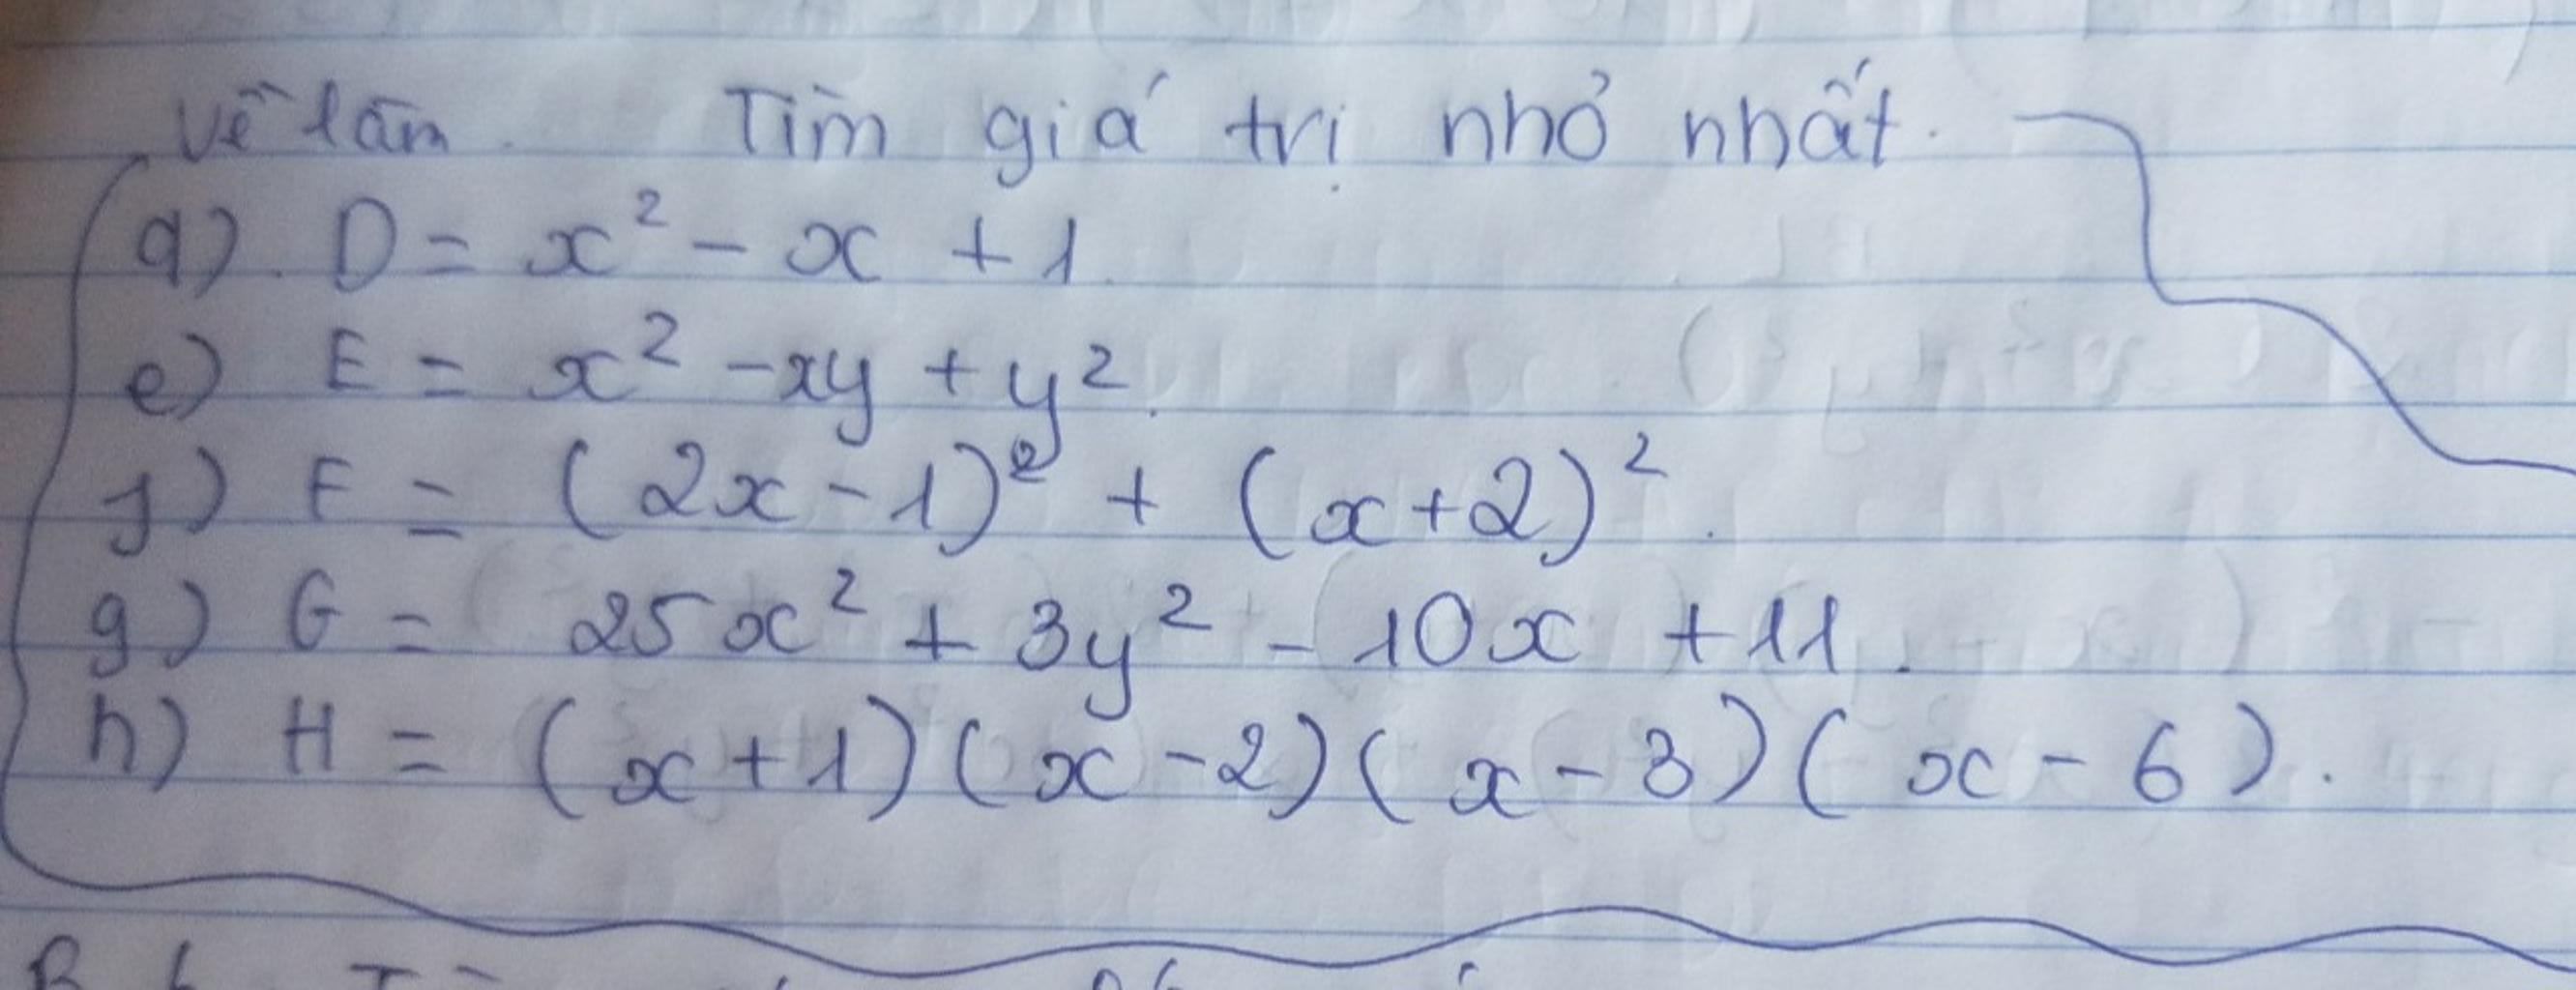 Về làm. Tìm giá trị nhỏ nhất.
d). D = x² - x + 1.
e) E = x² - xy + y².
f) F = (2x - 1)² + (x + 2)².
g) G = 25x² + 3y² - 10x + 11.
h) H = (x + 1)(x - 2)(x - 3)(x - 6).